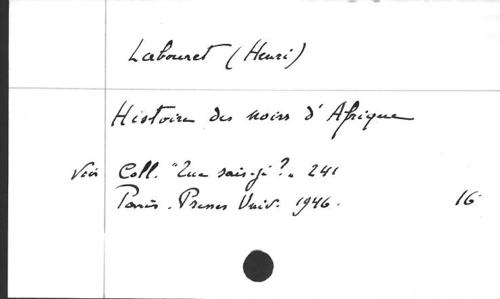 Labouret (Henri)
Histoire des noirs d'Afrique
Voir Coll. "Que sais-je?" 241
Paris. Presses Univ. 1946. 16